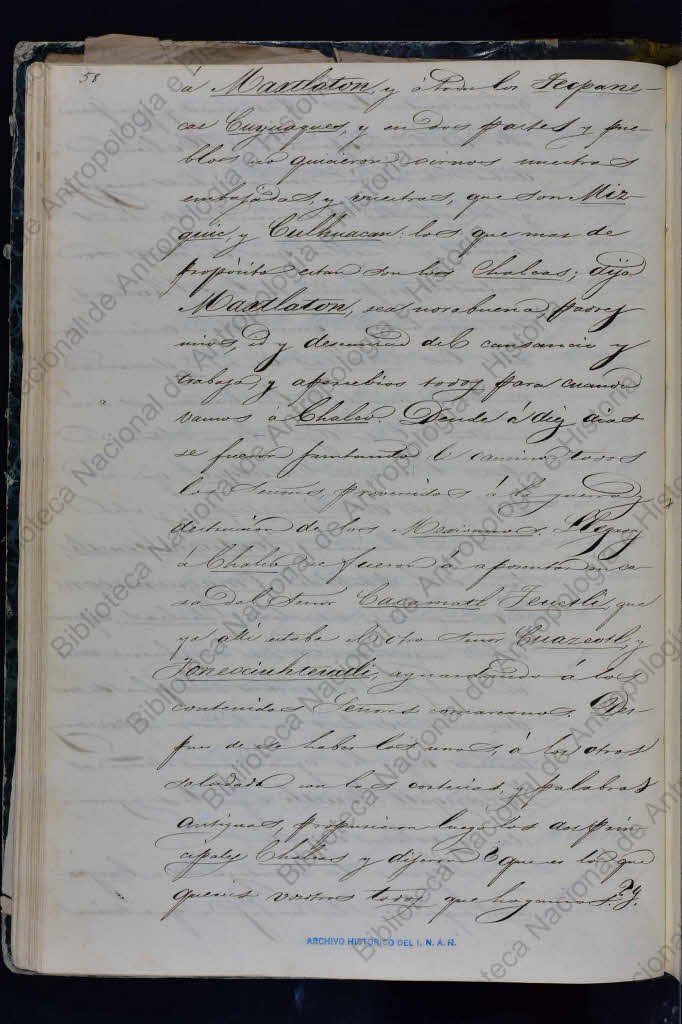 58
á Maxtlaton, y á todos los Tecpane-
cas Cuyuaques, y en dos partes y pue-
blos no quisieron oirnos nuestras
embajadas, y vuestras, que son Miz-
quic, y Culhuacan: los que mas de
propósito estan son los Chalcas; dijo
Maxtlaton, sea norabuena, padres
mios, id y descansad del cansancio y
trabajo, y apercebios todos para cuando
vamos á Chalco. Dende á diez dias
se fueron juntando é caminar todos
los Señores, provenidos á la guerra y
destruicion de los Mexicanos. Llegados
á Chalco se fueron á aposentar en ca-
sa del Señor Cacamatl Teuctli, que
ya allí estaba el otro Señor Cuazeotl, y
Tonteoziuhteuctli, aguardando á los
contenidos Señores comarcanos. Des-
pues de se haber los unos, á los otros
saludado con las cortesias, y palabras
antiguas, propusieron luego los dos prin-
cipales Chalcas y dijeron ¿que es lo que
quereis vosotros todos que hagamos? y.
ARCHIVO HISTORICO DEL I. N. A. H.
Biblioteca Nacional de Antropología e Historia